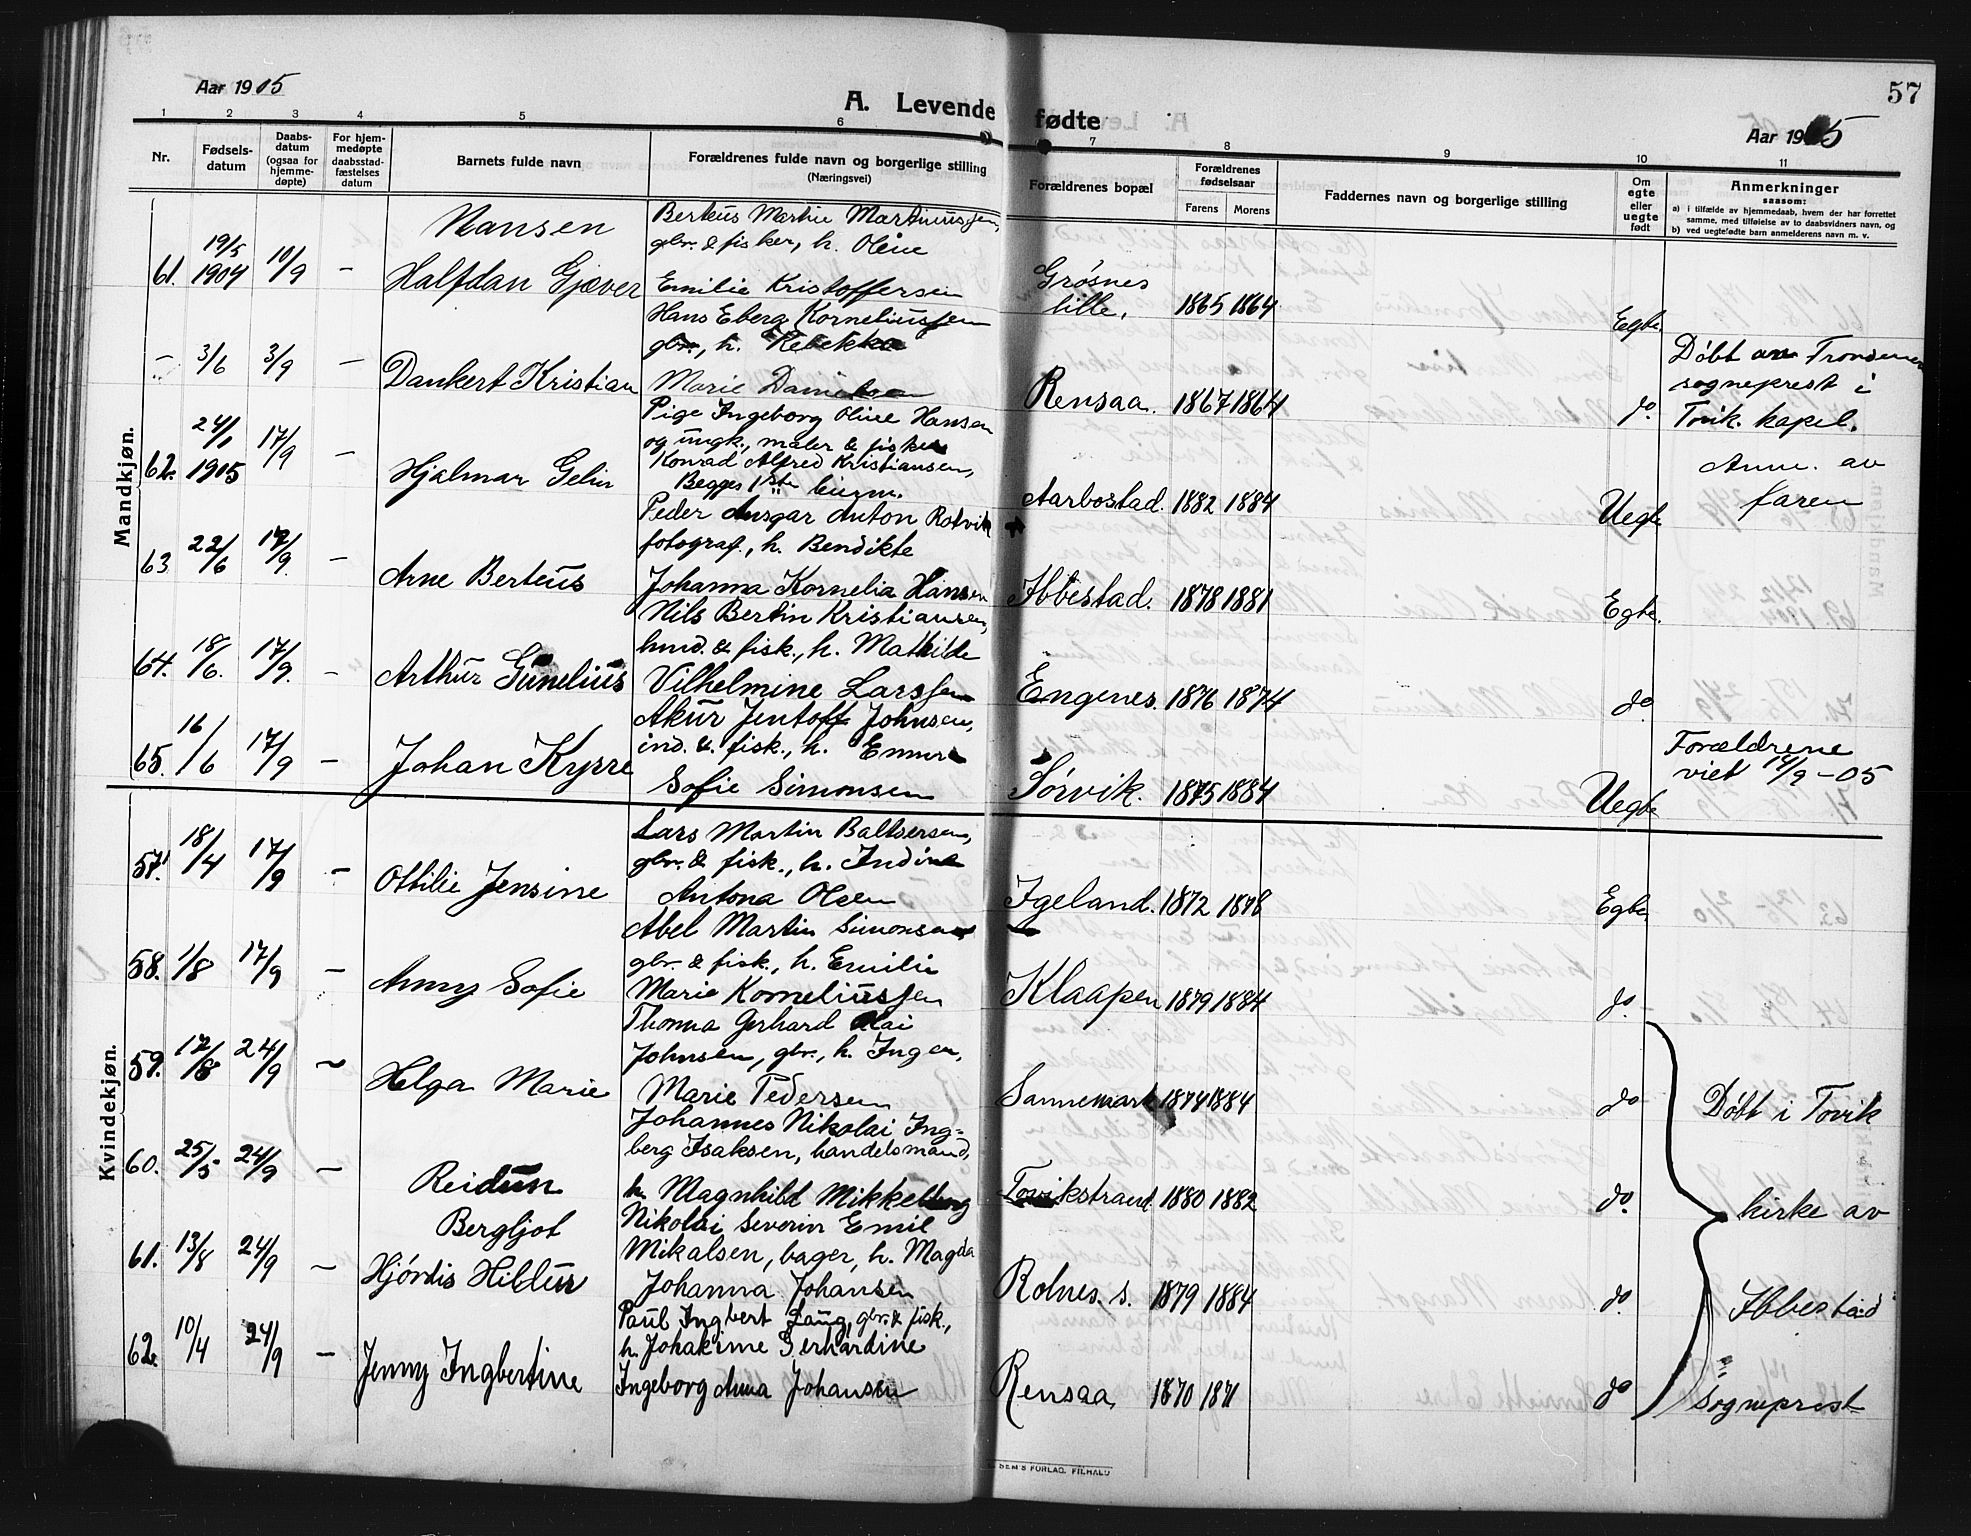 57
Aar 1905
A. Levende fødte
Aar 1905
1 2 3 4 5 6 7 8 9 10 11
Nr.
Fødsels-datum
Daabs-datum (ogsaa for hjemme-døpte)
For hjem-medøpte daabsstad-fæstelses datum
Barnets fulde navn
Forældrenes fulde navn og borgerlige stilling
(Næringsvei)
Forældrenes bopæl
Forældrenes fødselsaar
Farens Morens
Faddernes navn og borgerlige stilling
Om egte eller uegte født
Anmerkninger
saasom:
a) i tilfælde av hjemmedaab, hvem der har forrettet
samme, med tilføielse av to daabsvidners navn, og
b) ved uegtefødte barn anmelderens navn m. v.
Mandkjøn.
Nansen
Berteus Martin Martinussen,
gbr. & fisker, h. Oline
61. 19/5 1904 10/9 – Halfdan Gjæver Emilie Kristoffersen Grøsnes lille. 1865 1864 Egte
Hans Eberg Korneliussen
gbr., h. Rebekka
– 3/6 3/9 – Dankert Kristian Marie Danielsen Rensaa. 1867 1864 do.
Døbt av Trondenes
sogneprest i
Tovik kapel.
Pige Ingeborg Oline Hansen
og ungk., maler & fisker
62. 24/1 1905 17/9 – Hjalmar Gelin Konrad Alfred Kristiansen,
Begges 1ste leierm. Aarbostad. 1882 1884 Uegte
Anm. av
faren
Peder Ansgar Anton Rotvik
fotograf., h. Bendikte
63. 22/6 17/9. – Arne Berteus Johanna Kornelia Hansen Ibbestad. 1878 1881 Egte.
Nils Bertin Kristiansen,
hmd. & fisk., h. Mathilde
64. 18/6. 17/9. – Arthur Gunelius Vilhelmine Larssen Engenes. 1876 1874 do.
Akur Jentoft Johnsen,
ind. & fisk., h. Emma
65. 16/6 17/9 – Johan Kyrre Sofie Simonsen Sørvik. 1875 1884 Uegte
Forældrene
viet 17/9 – 05
Kvindekjøn.
Lars Martin Baltsersen,
gbr. & fisk., h. Indine
57. 18/4 17/9 – Ottilie Jensine Antona Olsen Igeland. 1872 1878 Egte.
Abel Martin Simonsen
gbr. & fisk., h. Emilie
58. 1/8 17/9 – Anny Sofie Marie Korneliussen Klaapen 1879 1884 do.
Thoma Gerhard Olai
Johnsen, gbr., h. Inga
59. 17/8 24/9 – Helga Marie Marie Pedersen Sannemark 1874 1884 do
Johannes Nikolai Ing-
berg Isaksen, handelsmand,
60. 25/5 24/9 – Reidun h. Magnhild Mikkelborg Tovikstrand. 1880 1882 do.
Bergljot
Nikolai Severin Emil
Mikalsen, bager, h. Magda
61. 13/8 24/9 – Hjørdis Hildur Johanna Johansen Rolnes. s. 1879 1884 do
Paul Ingbert Laug, gbr. & fisk.,
h. Johakime Gerhardine
62. 10/4 24/9 – Jenny Ingbertine Ingeborg Anna Johansen Rensaa. 1870 1871 do
Døbt i Tovik
kirke av
Ibbestad
sogneprest